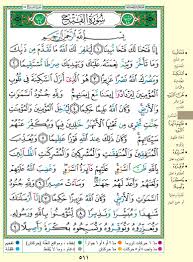 سُورَةُ الْفَتْحِ
بِسْمِ ٱللَّهِ ٱلرَّحْمَٰنِ ٱلرَّحِيمِ
إِنَّا فَتَحْنَا لَكَ فَتْحًا مُّبِينًا ١ لِّيَغْفِرَ لَكَ ٱللَّهُ مَا تَقَدَّمَ مِن ذَنۢبِكَ
وَمَا تَأَخَّرَ وَيُتِمَّ نِعْمَتَهُۥ عَلَيْكَ وَيَهْدِيَكَ صِرَٰطًا مُّسْتَقِيمًا ٢
وَيَنصُرَكَ ٱللَّهُ نَصْرًا عَزِيزًا ٣ هُوَ ٱلَّذِىٓ أَنزَلَ ٱلسَّكِينَةَ فِى
قُلُوبِ ٱلْمُؤْمِنِينَ لِيَزْدَادُوٓا۟ إِيمَٰنًا مَّعَ إِيمَٰنِهِمْ ۗ وَلِلَّهِ جُنُودُ ٱلسَّمَٰوَٰتِ
وَٱلْأَرْضِ ۚ وَكَانَ ٱللَّهُ عَلِيمًا حَكِيمًا ٤ لِّيُدْخِلَ ٱلْمُؤْمِنِينَ وَٱلْمُؤْمِنَٰتِ
جَنَّٰتٍ تَجْرِى مِن تَحْتِهَا ٱلْأَنْهَٰرُ خَٰلِدِينَ فِيهَا وَيُكَفِّرَ عَنْهُمْ
سَيِّـَٔاتِهِمْ ۚ وَكَانَ ذَٰلِكَ عِندَ ٱللَّهِ فَوْزًا عَظِيمًا ٥ وَيُعَذِّبَ
ٱلْمُنَٰفِقِينَ وَٱلْمُنَٰفِقَٰتِ وَٱلْمُشْرِكِينَ وَٱلْمُشْرِكَٰتِ ٱلظَّآنِّينَ
بِٱللَّهِ ظَنَّ ٱلسَّوْءِ ۚ عَلَيْهِمْ دَآئِرَةُ ٱلسَّوْءِ ۖ وَغَضِبَ ٱللَّهُ عَلَيْهِمْ
وَلَعَنَهُمْ وَأَعَدَّ لَهُمْ جَهَنَّمَ ۖ وَسَآءَتْ مَصِيرًا ٦ وَلِلَّهِ جُنُودُ
ٱلسَّمَٰوَٰتِ وَٱلْأَرْضِ ۚ وَكَانَ ٱللَّهُ عَزِيزًا حَكِيمًا ٧ إِنَّآ أَرْسَلْنَٰكَ
شَٰهِدًا وَمُبَشِّرًا وَنَذِيرًا ٨ لِّتُؤْمِنُوا۟ بِٱللَّهِ وَرَسُولِهِۦ
وَتُعَزِّرُوهُ وَتُوَقِّرُوهُ وَتُسَبِّحُوهُ بُكْرَةً وَأَصِيلًا ٩
٥١١